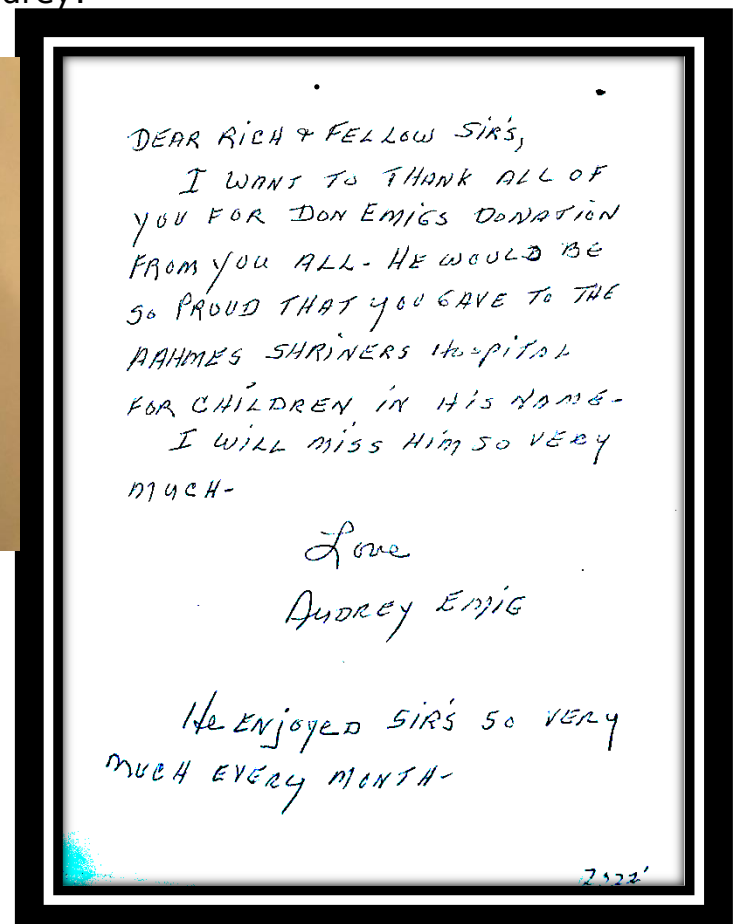 DEAR RICH & FELLOW SIR'S,
I WANT TO THANK ALL OF
YOU FOR DON EMIGS DONATION
FROM YOU ALL- HE WOULD BE
SO PROUD THAT YOU GAVE TO THE
AAHMES SHRINERS HOSPITAL
FOR CHILDREN IN HIS NAME-
I WILL MISS HIM SO VERY
MUCH-
Love
AUDREY EMIG
He ENJOYED SIR'S SO VERY
MUCH EVERY MONTH-